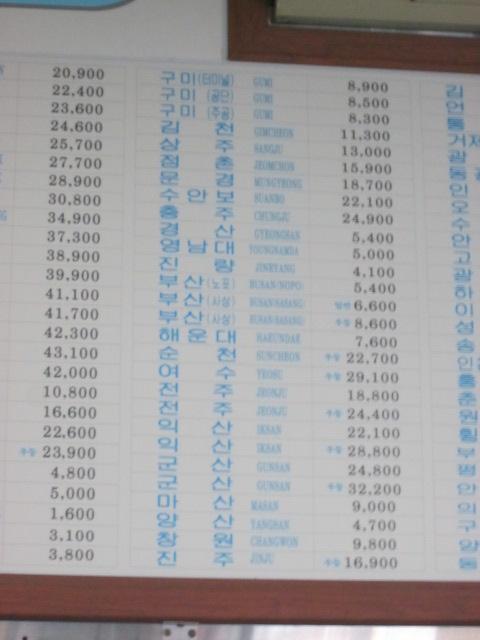 20,900
22,400
23,600
24,600
25,700
27,700
28,900
30,800
34,900
37,300
38,900
39,900
41,100
41,700
42,300
43,100
42,000
10,800
16,600
22,600
우등 23,900
4,800
5,000
1,600
3,100
3,800
구미(터미널) GUMI 8,900
구미(공단) GUMI 8,500
구미(주공) GUMI 8,300
김천 GIMCHEON 11,300
상주 SANGJU 13,000
점촌 JEOMCHON 15,900
문경 MUNGYEONG 18,700
수안보 SUANBO 22,100
충주 CHUNGJU 24,900
경산 GYEONGSAN 5,400
영남대 YOUNGNAMDA 5,000
진량 JINRYANG 4,100
부산(노포) BUSAN(NOPO) 5,400
부산(사상) BUSAN(SASANG) 일반 6,600
부산(사상) BUSAN(SASANG) 우등 8,600
해운대 HAEUNDAE 7,600
순천 SUNCHEON 우등 22,700
여수 YEOSU 우등 29,100
전주 JEONJU 18,800
전주 JEONJU 우등 24,400
익산 IKSAN 22,100
익산 IKSAN 우등 28,800
군산 GUNSAN 24,800
군산 GUNSAN 우등 32,200
마산 MASAN 9,000
양산 YANGSAN 4,700
창원 CHANGWON 9,800
진주 JINJU 우등 16,900